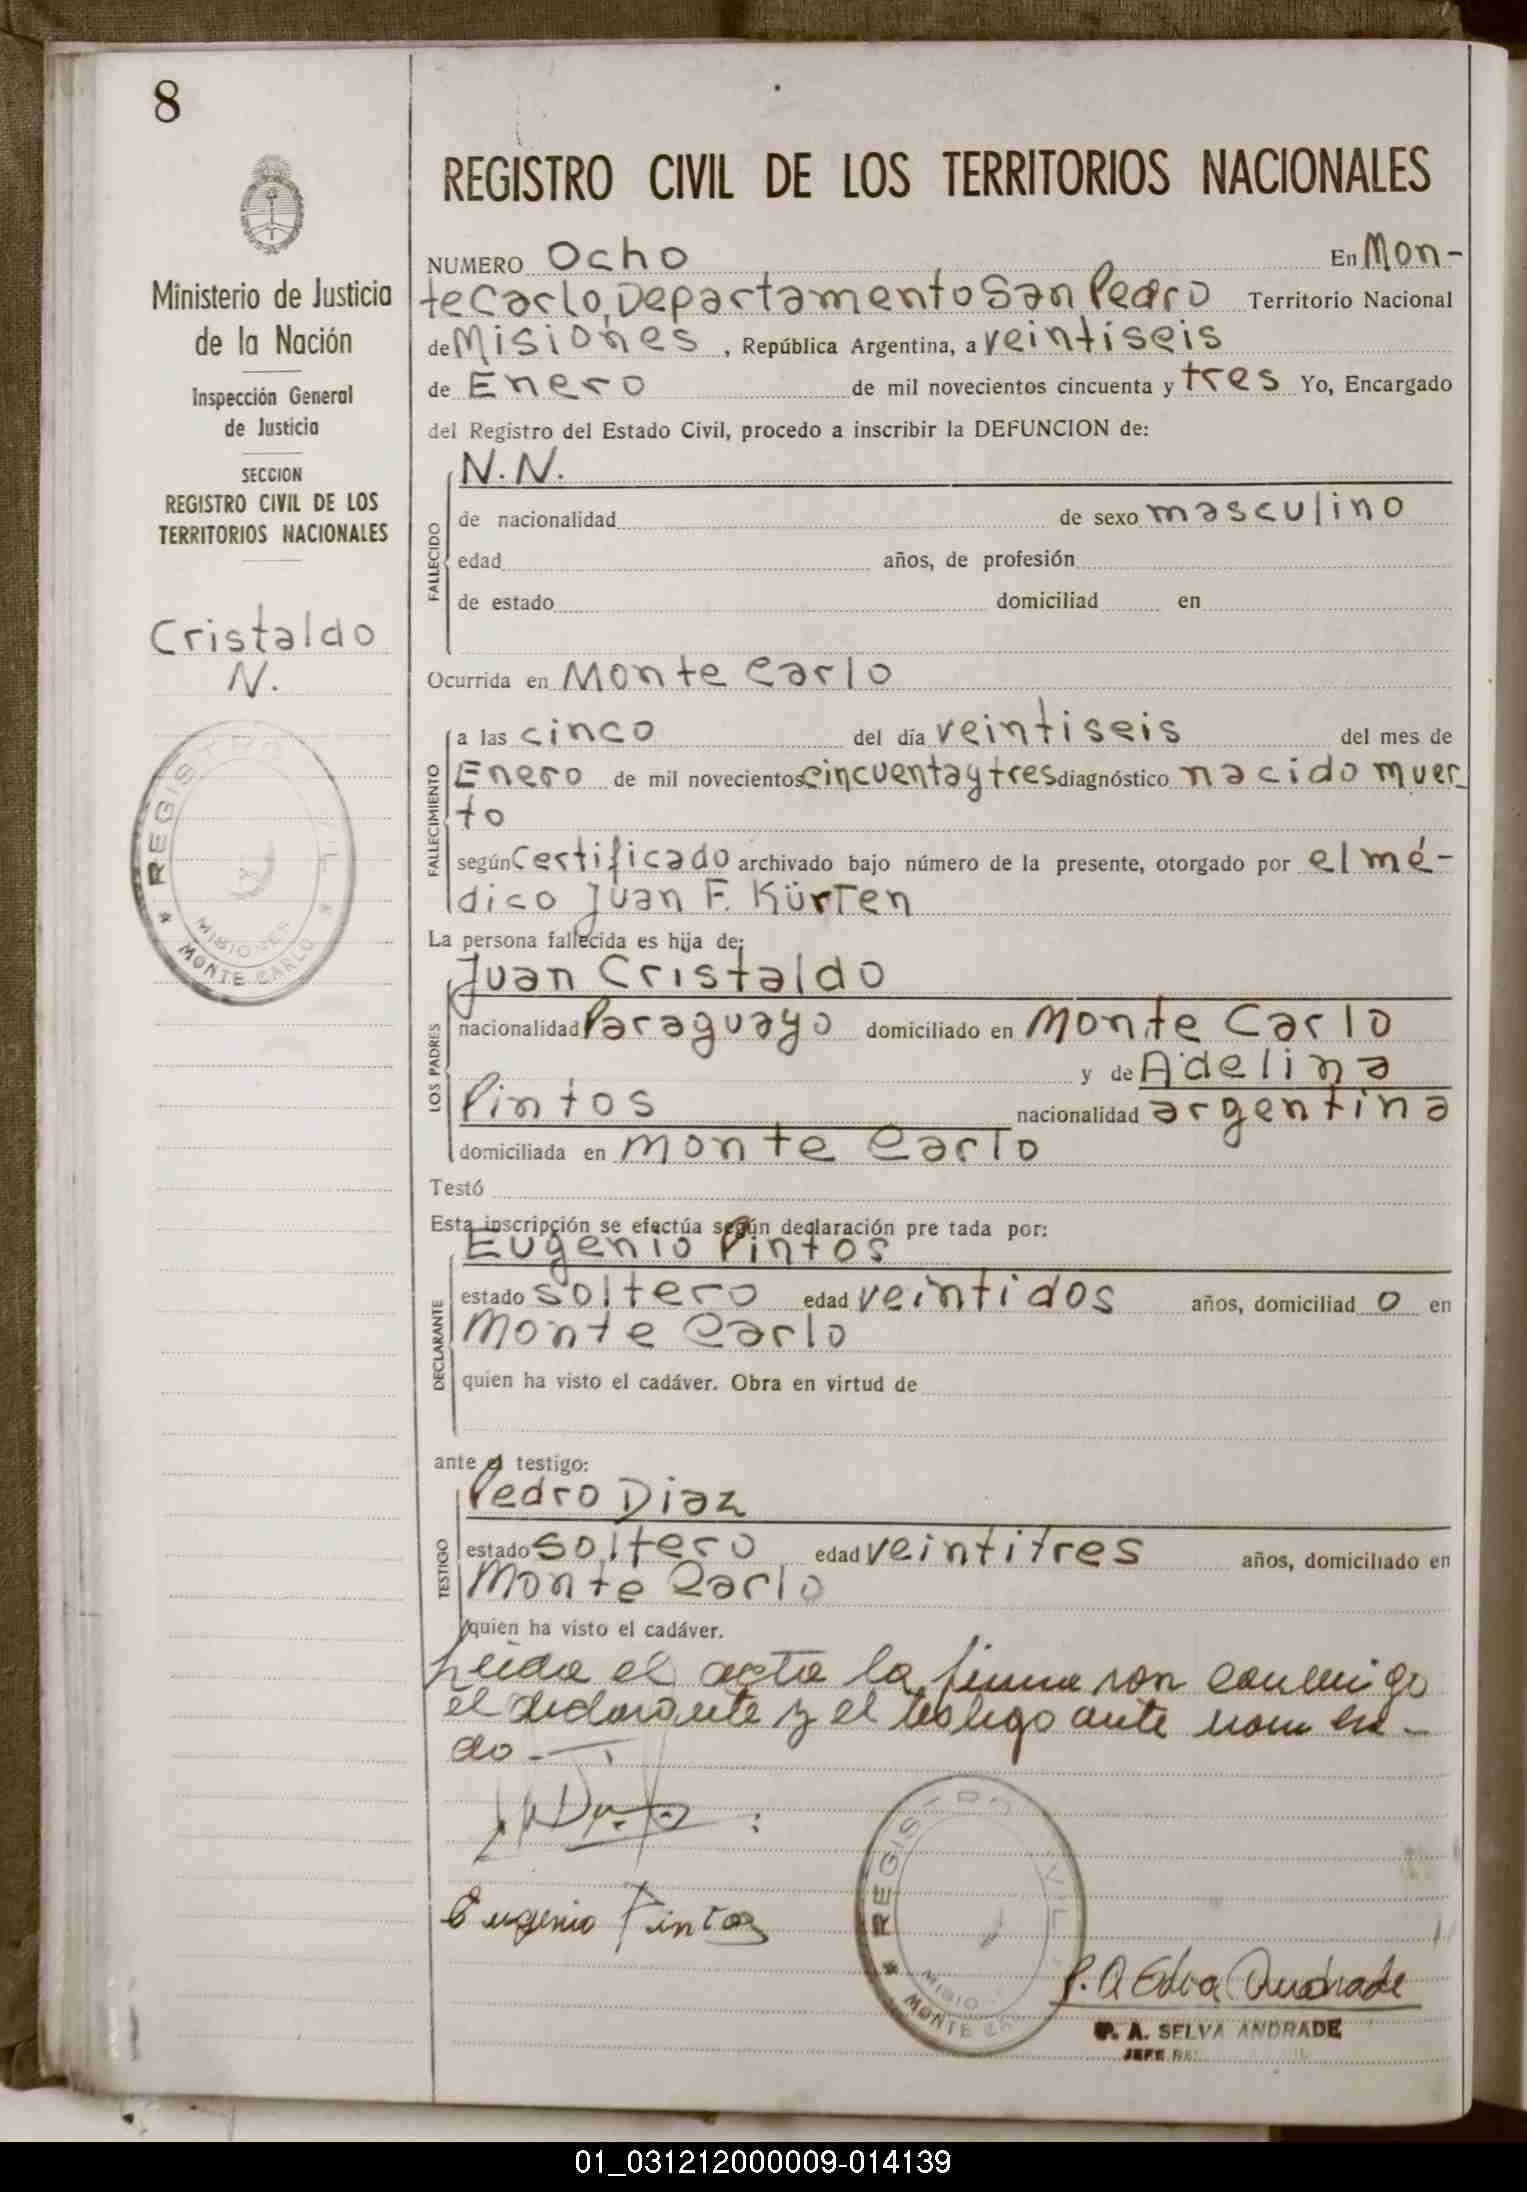 8
Ministerio de Justicia
de la Nación
Inspección General
de Justicia
SECCION
REGISTRO CIVIL DE LOS
TERRITORIOS NACIONALES
Cristaldo
N.
REGISTRO CIVIL
MISIONES
* MONTE CARLO *
REGISTRO CIVIL DE LOS TERRITORIOS NACIONALES
NUMERO Ocho En Mon-
te Carlo, Departamento San Pedro Territorio Nacional
de Misiones, República Argentina, a veintiseis
de Enero de mil novecientos cincuenta y tres Yo, Encargado
del Registro del Estado Civil, procedo a inscribir la DEFUNCION de:
N.N.
FALLECIDO
de nacionalidad de sexo masculino
edad años, de profesión
de estado domiciliad en
Ocurrida en Monte Carlo
FALLECIMIENTO
a las cinco del día veintiseis del mes de
Enero de mil novecientos cincuenta y tres diagnóstico nacido muer-
to
según Certificado archivado bajo número de la presente, otorgado por el mé-
dico Juan F. Kürten
La persona fallecida es hija de:
LOS PADRES
Juan Cristaldo
nacionalidad Paraguayo domiciliado en Monte Carlo
y de Adelina
Pintos nacionalidad argentina
domiciliada en Monte Carlo
Testó
Esta inscripción se efectúa según declaración pre tada por:
DECLARANTE
Eugenio Pintos
estado soltero edad veintidos años, domiciliad o en
Monte Carlo
quien ha visto el cadáver. Obra en virtud de
ante el testigo:
TESTIGO
Pedro Diaz
estado soltero edad veintitres años, domiciliado en
Monte Carlo
quien ha visto el cadáver.
Leida el acta la firmaron conmigo
el declarante y el testigo ante nombra-
do
Eugenio Pintos
REGISTRO CIVIL
MISIO
* MONTE CA
P. A Selva Andrade
P. A. SELVA ANDRADE
JEFE RE
01_031212000009-014139